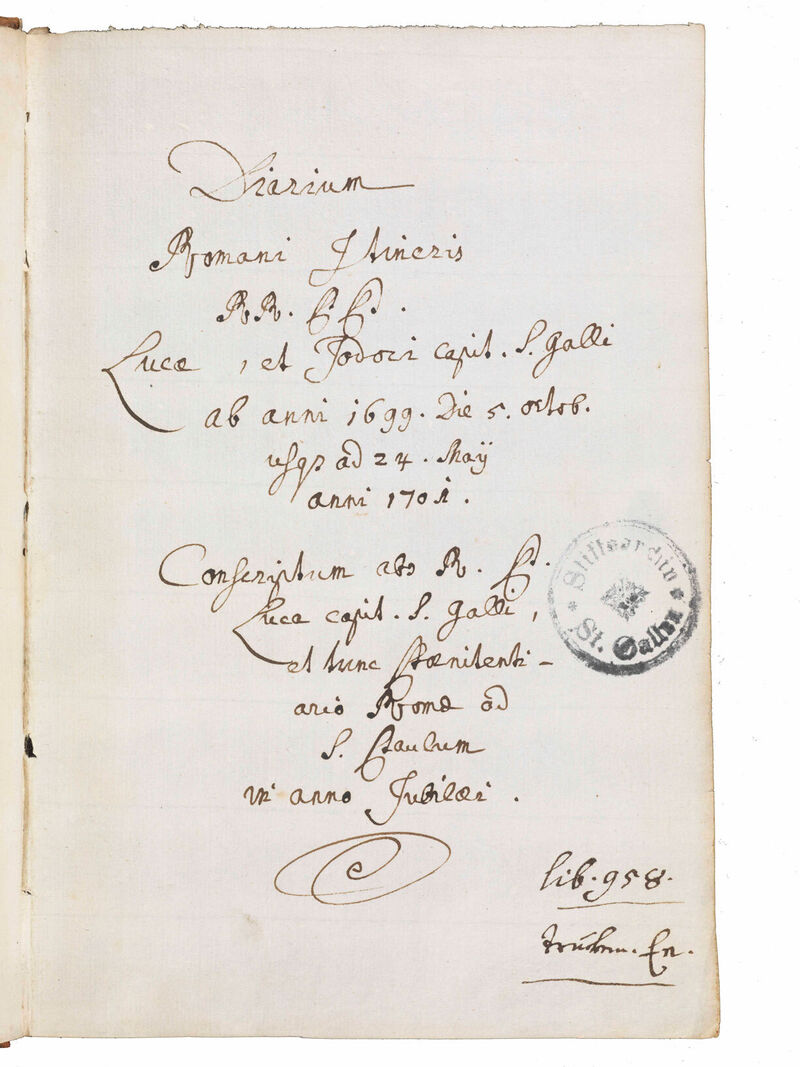 Diarium
Romani Itineris
RR. PP.
Lucæ, et Jodoci capit. S. Galli
ab anni 1699. Die 5. octob.
usqz ad 24. Maÿ
anni 1701.
Conscriptum ab R. P.
Luca capit. S. Galli,
et tunc Pœnitenti-
ario Romæ ad
S. Paulum
in anno Jubilæi.
Stiftsarchiv
St. Gallen
lib. 958.